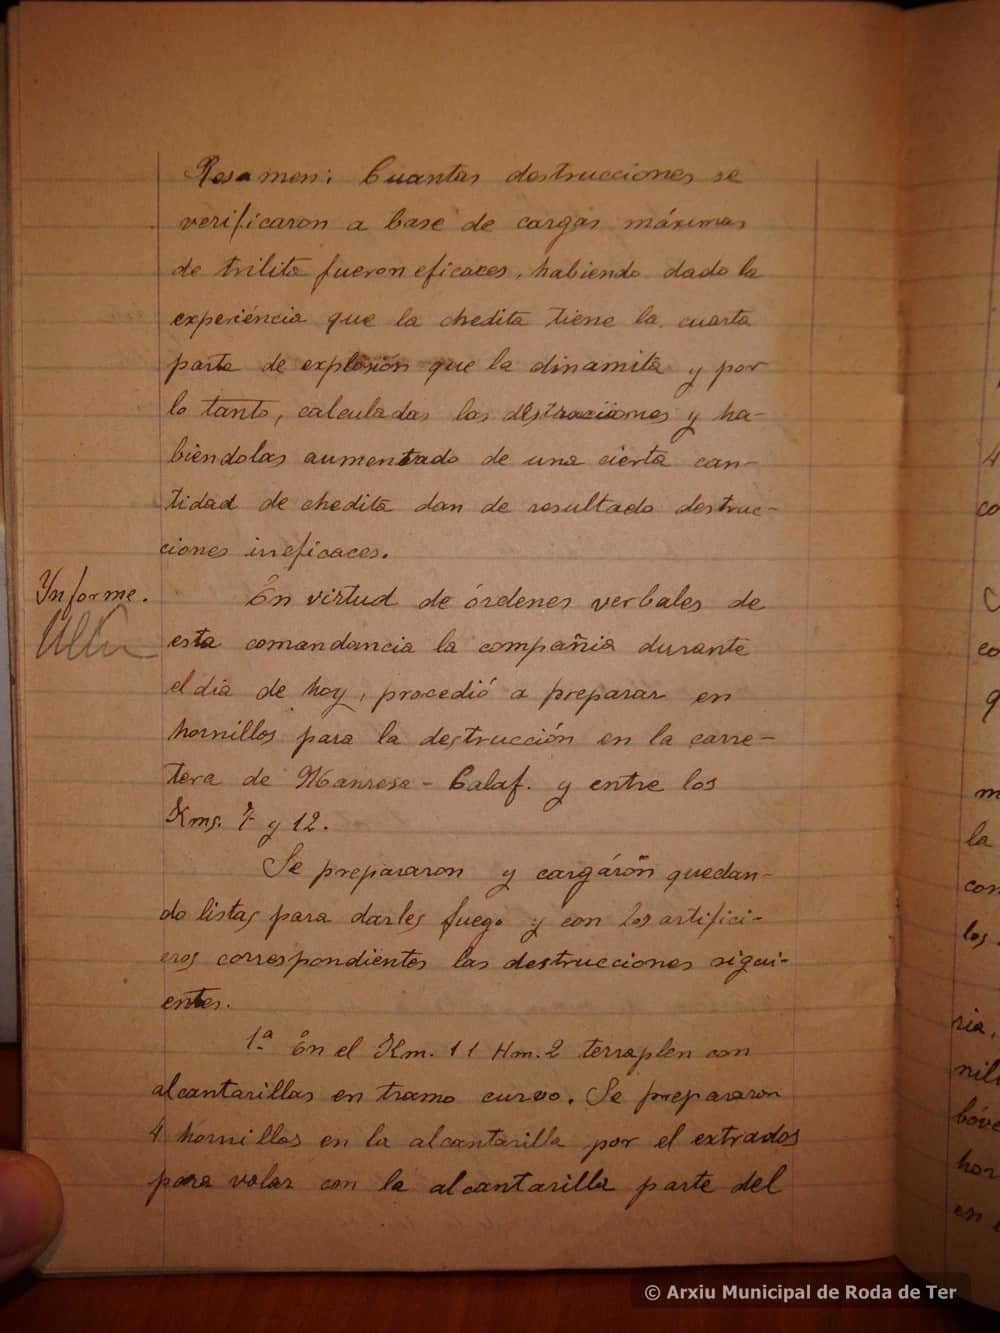 Resamen: Cuantas destrucciones se
verificaron a base de cargas máximas
de trilita fueron eficaces, habiendo dado la
experiéncia que la chedita tiene la cuarta
parte de explosión que la dinamita y por
lo tanto, calculadas las destrucciones y ha-
biendolas aumentado de una cierta can-
tidad de chedita dan de resultado destruc-
ciones ineficaces.
Ynforme.
En virtud de órdenes verbales de
esta comandancia la compañia durante
el dia de hoy, procedió a preparar en
hornillos para la destrucción en la carre-
tera de Manresa - Calaf. y entre los
Kms. 7 y 12.
Se prepararon y cargárón quedan-
do listas para darles fuego y con los artifici-
eros correspondientes las destrucciones sigui-
entes.
1ª En el Km. 11 Hm. 2 terraplen con
alcantarillas en tramo curvo. Se prepararon
4 hornillos en la alcantarilla por el extrados
para volar con la alcantarilla parte del
4
co
co
q
m
la
con
los
ria,
nill
bóve
hor
en
© Arxiu Municipal de Roda de Ter